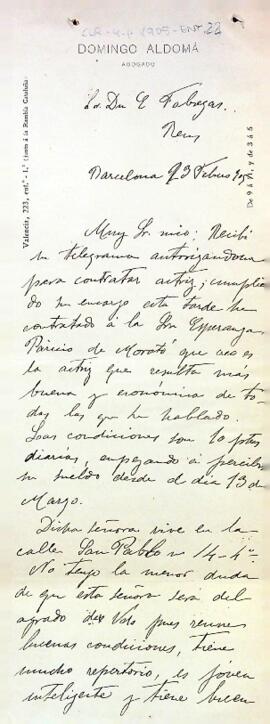 DOMINGO ALDOMÁ
ABOGADO
Valencia, 223, ent.º - 1.ª (junto á la Rambla Cataluña)
De 9 á 1, y de 3 á 6
Sr. Dn. E Fabregas.
Reus
Barcelona 23 Febrero
Muy Sr. mio: Recibí
su telegrama autorizándome
para contratar actriz; cumplien
do su encargo esta tarde he
contratado á la Sra Esperanza
Paricio de Morató que creo es
la actriz que resulta más
buena y económica de to-
das las que he hablado.
Las condiciones son 10 ptas
diarias, empezando á percibir
su sueldo desde el dia 13 de
Marzo.
Dicha señora vive en la
calle San Pablo nº 14-4º-
No tengo la menor duda
de que esta señora será del
agrado de Vds pues reune
buenas condiciones, tiene
mucho repertorio, es jóven
inteligente y tiene buen